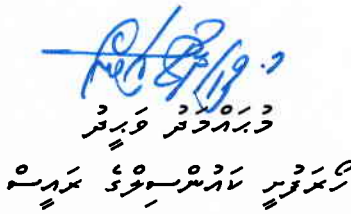 މުޙައްމަދު ވަޙީދު
ހޯރަފުށީ ކައުންސިލްގެ ރައީސް